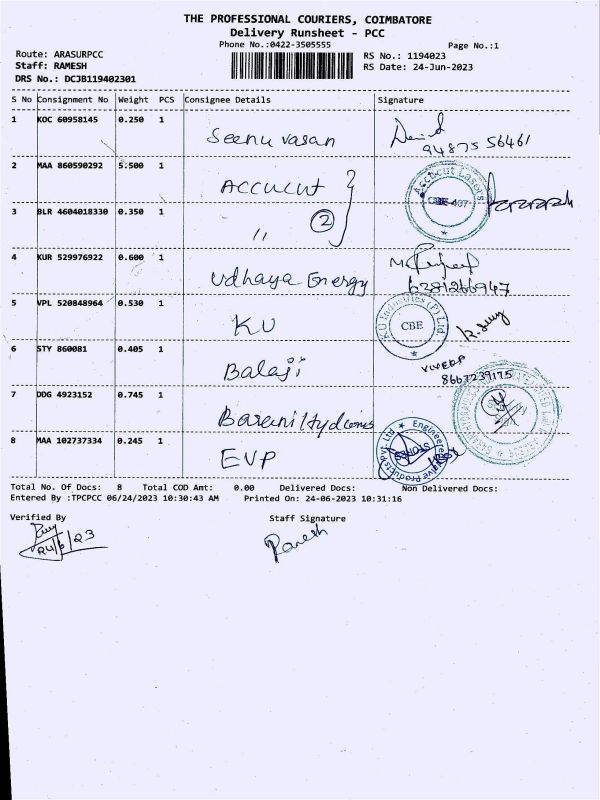 THE PROFESSIONAL COURIERS, COIMBATORE
Delivery Runsheet - PCC
Phone No.:0422-3505555 Page No.:1
Route: ARASURPCC RS No.: 1194023
Staff: RAMESH RS Date: 24-Jun-2023
DRS No.: DCJB119402301
S No Consignment No Weight PCS Consignee Details Signature
1 KOC 60958145 0.250 1
Seenu vasan 94875 56461
2 MAA 860590292 5.500 1
Accucut
Accucut Lasers CBE-407
3 BLR 4604018330 0.350 1
" 2
4 KUR 529976922 0.600 1
Udhaya Energy 6381266947
5 VPL 520848964 0.530 1
KU
K U Industries (P) Ltd. CBE
6 STY 860081 0.405 1
Balaji 8667239175
7 DDG 4923152 0.745 1
8 MAA 102737334 0.245 1
EVP
STORES
Total No. Of Docs: 8 Total COD Amt: 0.00 Delivered Docs: Non Delivered Docs:
Entered By :TPCPCC 06/24/2023 10:30:43 AM Printed On: 24-06-2023 10:31:16
Verified By Staff Signature
24/6/23 Ramesh